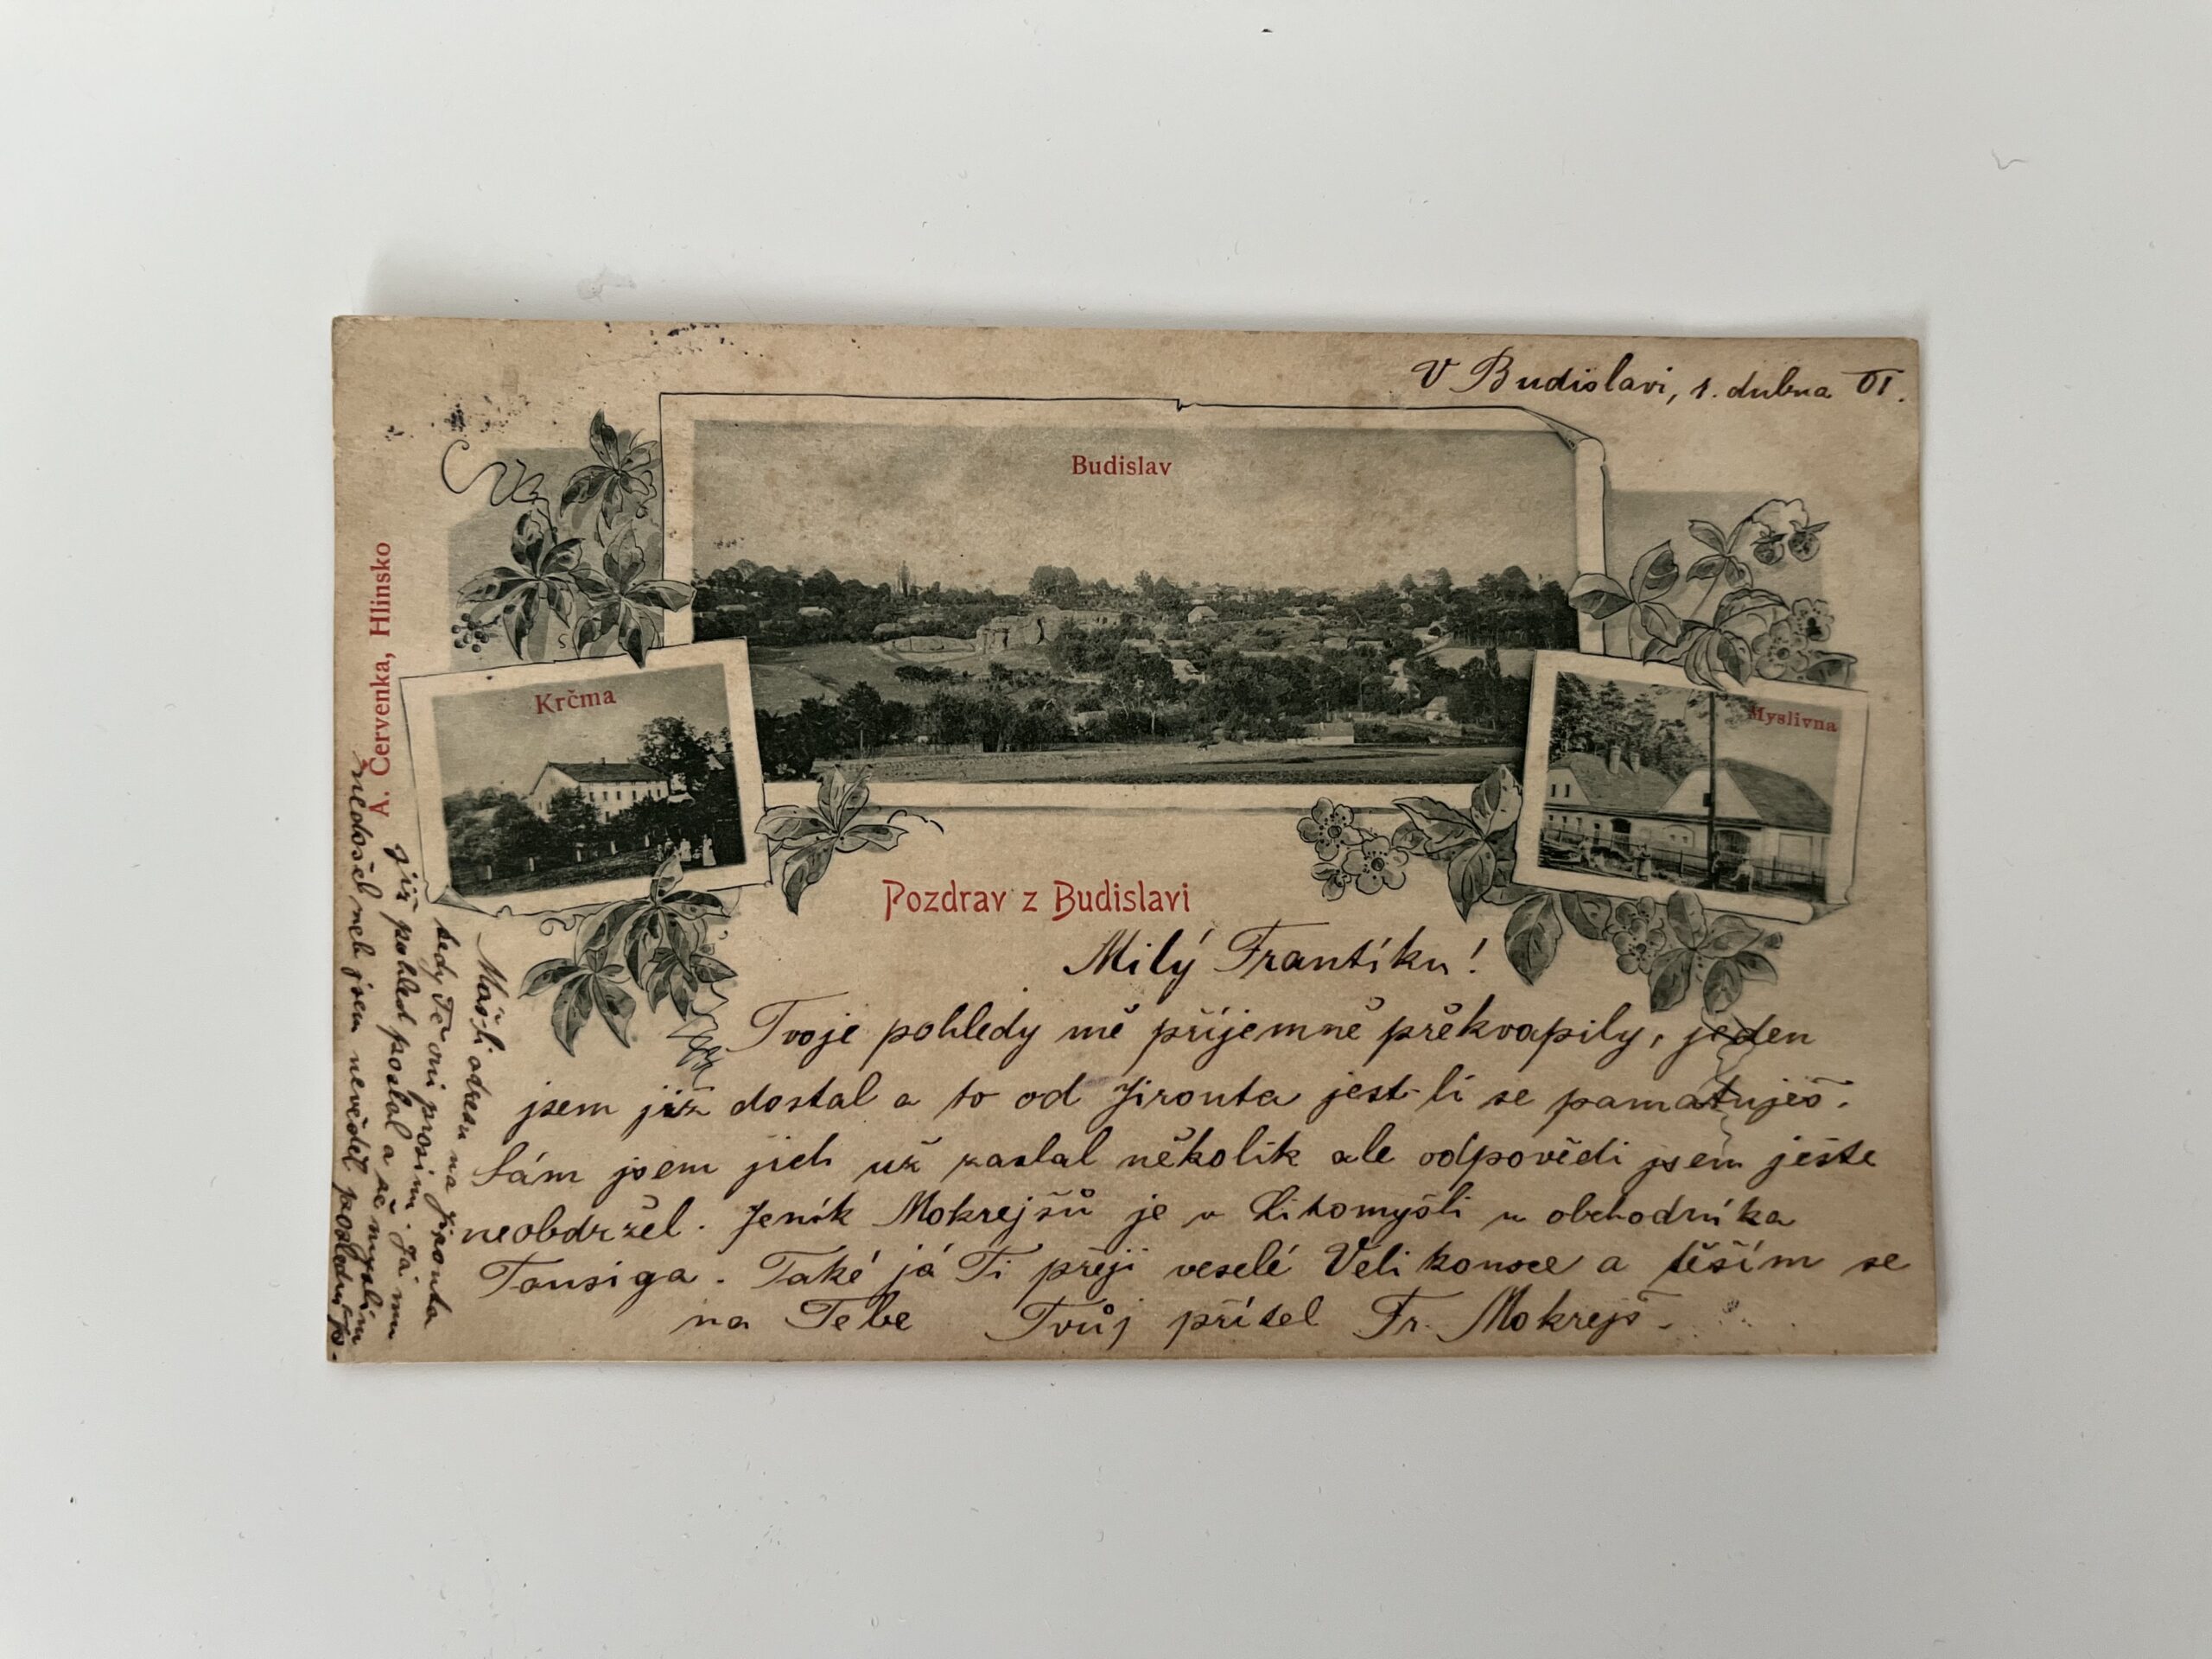 V Budislavi, 1. dubna 01.
Budislav
Krčma
Myslivna
A. Červenka, Hlinsko
Pozdrav z Budislavi
Milý Frantíku!
Tvoje pohledy mě příjemně překvapily, jeden
jsem již dostal a to od Jironta jest-li se pamatuješ.
Sám jsem jich už zaslal několik ale odpovědi jsem ješte
neobdržel. Jeník Mokrejšů je v Litomyšli u obchodníka
Tausiga. Také já Ti přeji veselé Velikonoce a těším se
na Tebe Tvůj přítel Fr. Mokrejš.
Máš-li adresu na Jironta
tedy Tě o ni prosím. Já mu
již pohled poslal a se myslím
nedošel neb jsem nevěděl poslední p.